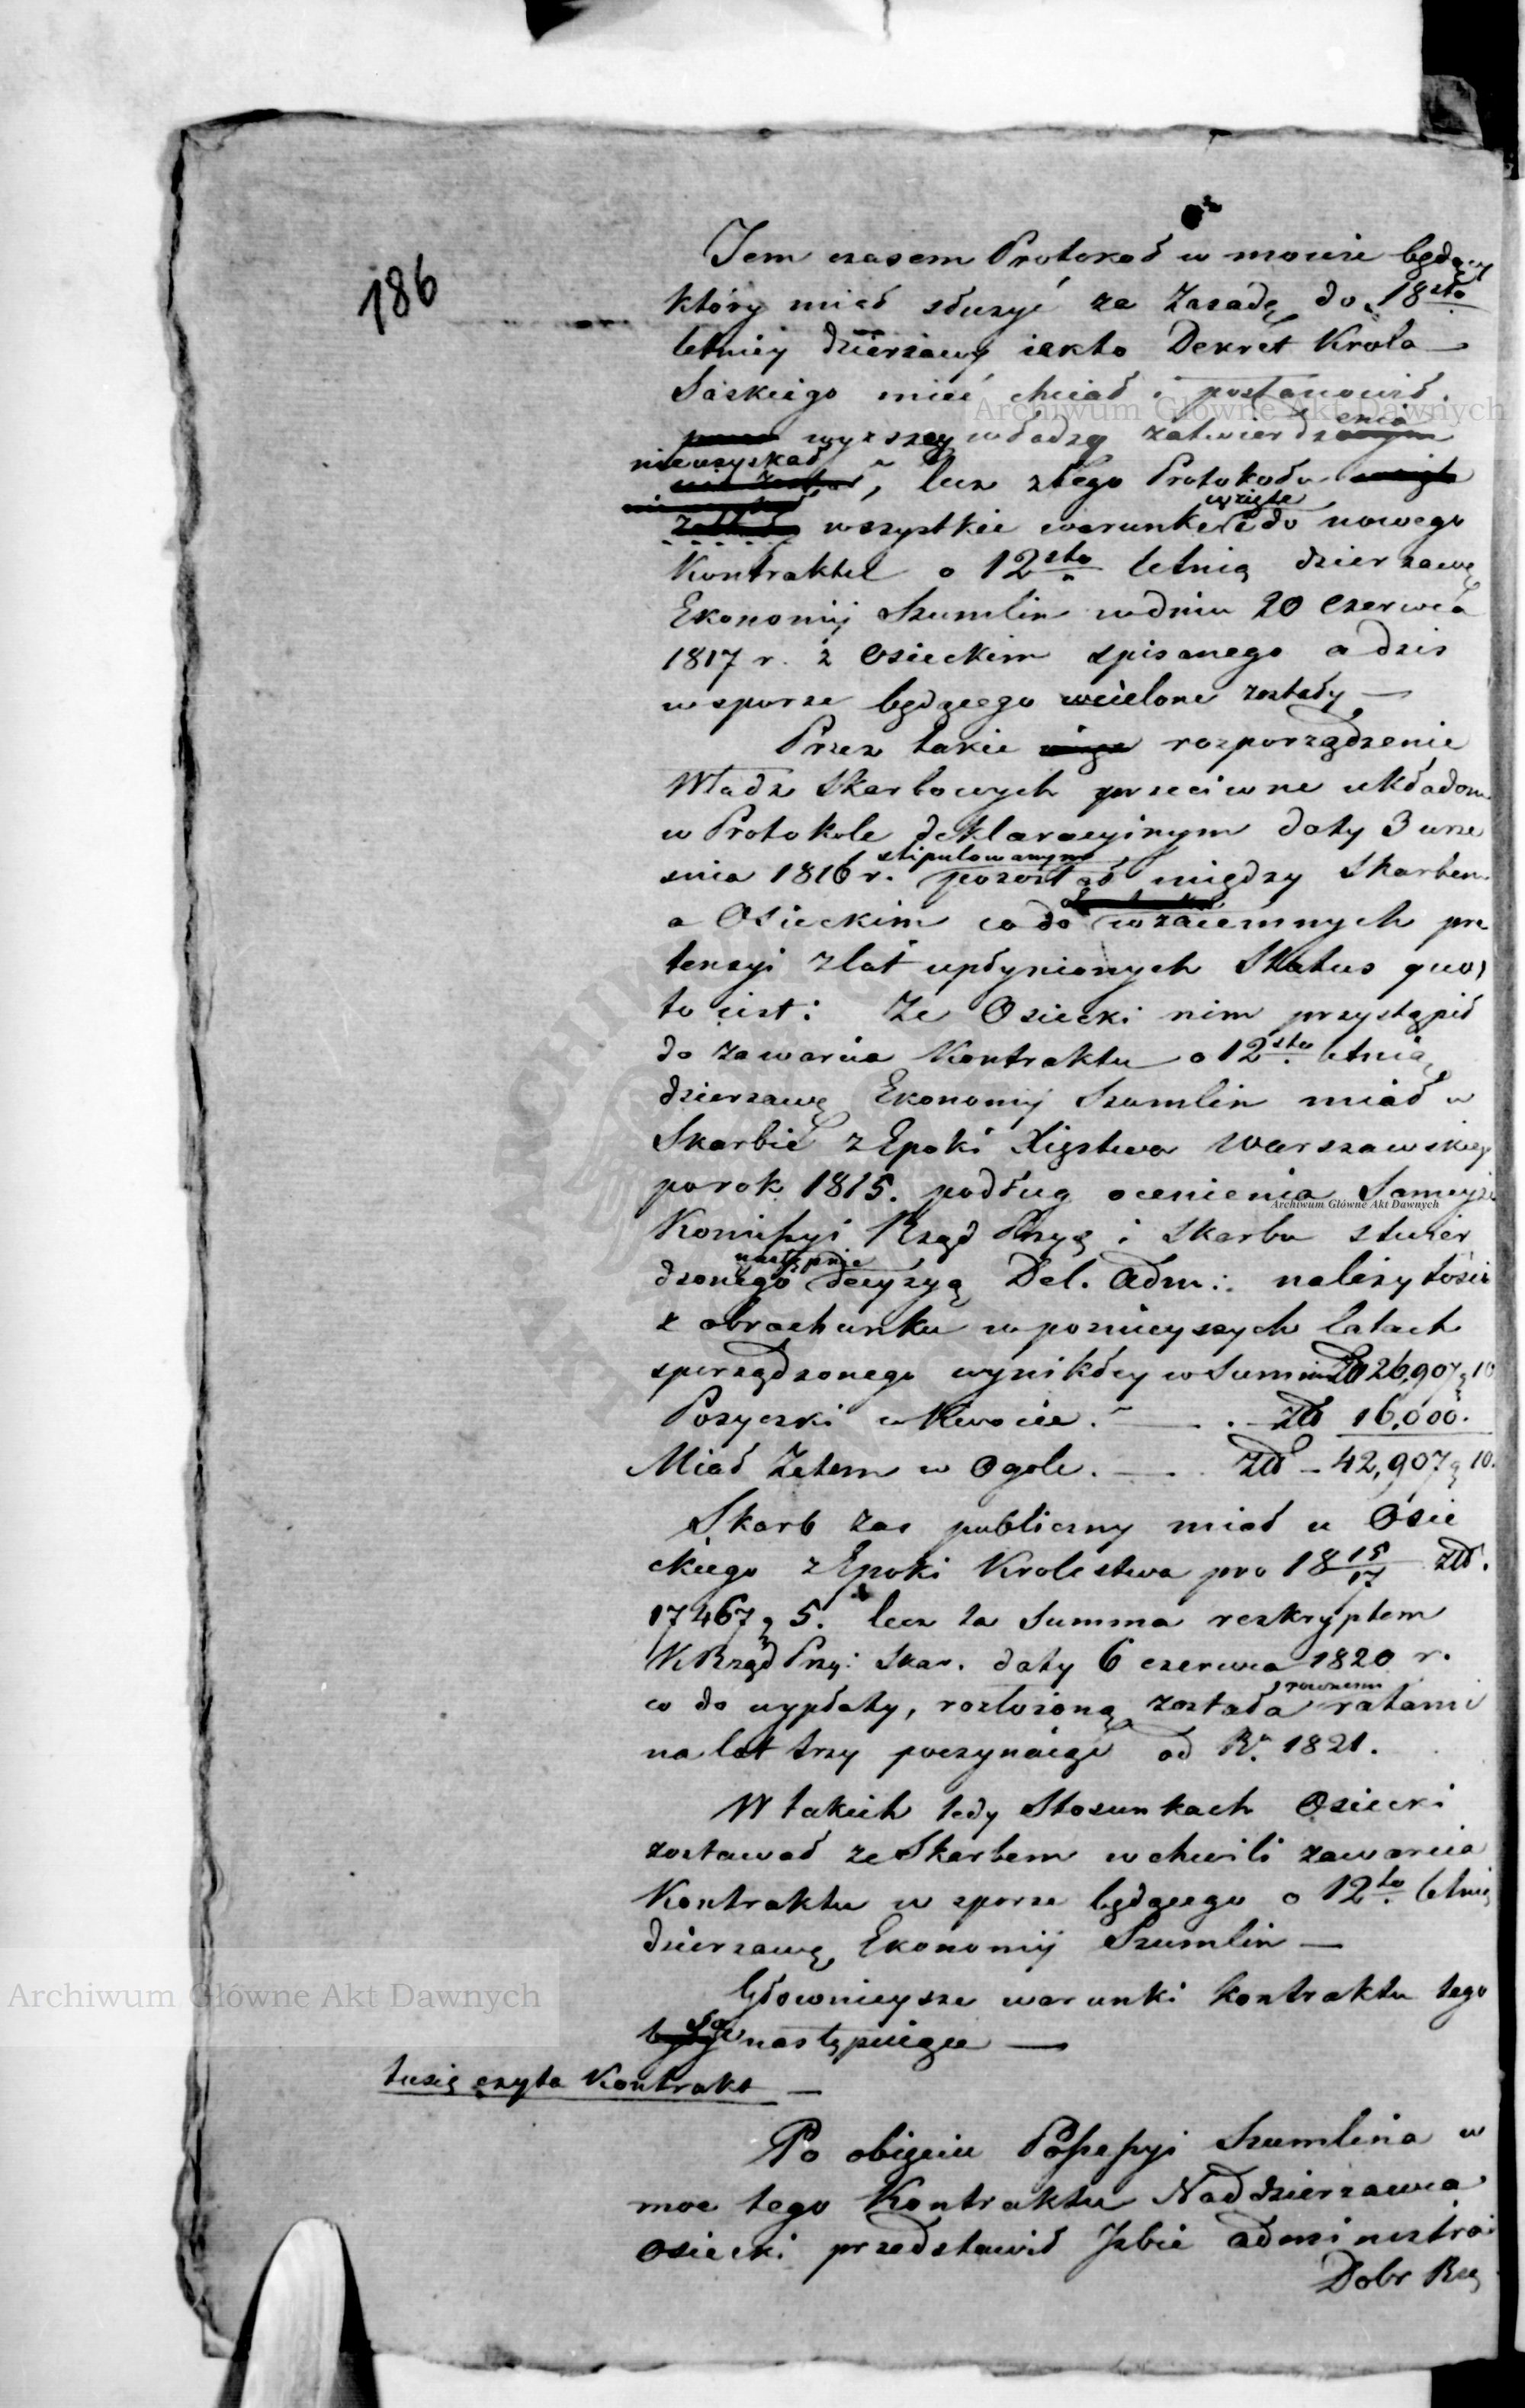 186
Tem czasem Protokoł w mowie będący
który miał służyć za Zasadę do 18sto
letniey dzierżawy iak to Dekret Krola
Saskiego mieć chciał i postanowił.
wyższey władzy zatwierdzenia
nieuzyskał, lecz z tego Protokołu
wszystkie warunki wzięte do nowego
Kontraktu o 12sto letnią dzierzawę
Ekonomij Szumlin w dniu 20 Czerwca
1817 r. z Osieckim spisanego a dzis
w sporze będącego wcielone zostały —
Przez takie rozporządzenie
Władz Skarbowych przeciwne układom
w Protokole deklaracyinym daty 3 wrze
snia 1816 r. stipulowanym pozostał między Skarbem
a Osieckim co do wzaiemnych pre
tensyi z lat upłynionych Status quo,
to iest: Ze Osiecki nim przystąpił
do zawarcia Kontraktu o 12sto letnią
dzierzawę Ekonomij Szumlin miał w
Skarbie z Epoki Xięstwa Warszawskieg
po rok 1815. podług ocenienia Sameyże
Komissyi Rząd Przy i Skarbu stwier
dzonego następnie decyzyą Del. Adm: należytości
z obrachunku w poznieyszych latach
sporządzonego wynikłey w Summie Zł 26,907 g 10
Pozyczki w kwocie. — . — Zł 16,000.
Miał Zatem w Ogole. — . Zł — 42,907 g 10.
Skarb zas publiczny miał u Osie
ckiego z Epoki Krolestwa pro 18 15/17 Zł.
17467 g 5. lecz ta Summa reskryptem
K Rząd Przy: Skar. daty 6 czerwca 1820 r.
co do wypłaty, rozłożoną została rownemi ratami
na lat trzy poczynaiąc od R. 1821.
W takich tedy Stosunkach Osiecki
zostawał ze Skarbem w chwili zawarcia
Kontraktu w sporze będącego o 12to letnią
dzierzawę Ekonomij Szumlin —
Głownieysze warunki kontraktu tego
są następuiące —
tu się czyta Kontrakt —
Po obięciu Possessyi Szumlina w
moc tego Kontraktu Naddzierzawca
Osiecki przedstawił Izbie administrac
Dobr Rzą
Archiwum Główne Akt Dawnych
Archiwum Główne Akt Dawnych
Archiwum Główne Akt Dawnych